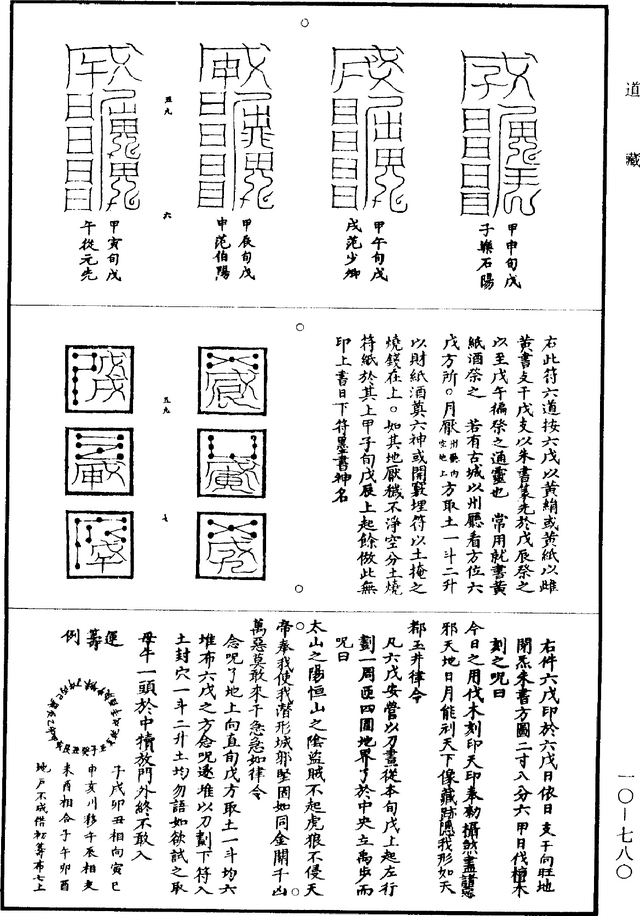 道藏
甲申旬戊
子樂石陽
甲午旬戊
戌范少卿
甲辰旬戊
申范伯陽
甲寅旬戊
午從元光
右此符六道按六戊以黃絹或黃紙以雌
黃書支干戊支以朱書篆先於戊辰祭之
以至戊午徧祭之通靈也 常用就書黃
紙酒祭之 若有古城以州廳看方位六
戊方所。月厭
方取土一斗二升
以財紙酒奠六神或開竅埋符以土掩之
燒錢在上。如其地厭穢不淨空分土燒
符紙於其上甲子旬戊辰上起餘倣此無
印上書日下符墨書神名
右件六戊印於六戊日依日支干向旺地
閉炁朱書方圖二寸八分六甲日伐檀木
刻之呪曰
今日之用伐木刻印天印奉勑攝煞盡誅
邪天地日月能利天下像藏跡隱我形如天
都玉井律令
凡六戊安營以刀晝從本旬戊上起左行
劃一周匝四圍地界了於中央立禹步而
呪曰
太山之陽恒山之陰盜賊不起虎狼不侵天
帝奉我使我潛形城郭堅固如同金關千山
萬惡莫敢來干急急如律令
念呪了地上向直旬戊方取土一斗均六
堆布六戊之方念呪逐堆以刀劃下符入
土封穴一斗二升土均勿語如欲試之取
母牛一頭於中犢放門外終不敢入
運籌例
子戌卯丑相向寅巳
申亥川移午辰相支
未酉相合子午卯酉
地戶不成借初籌布七上
一〇—七八〇